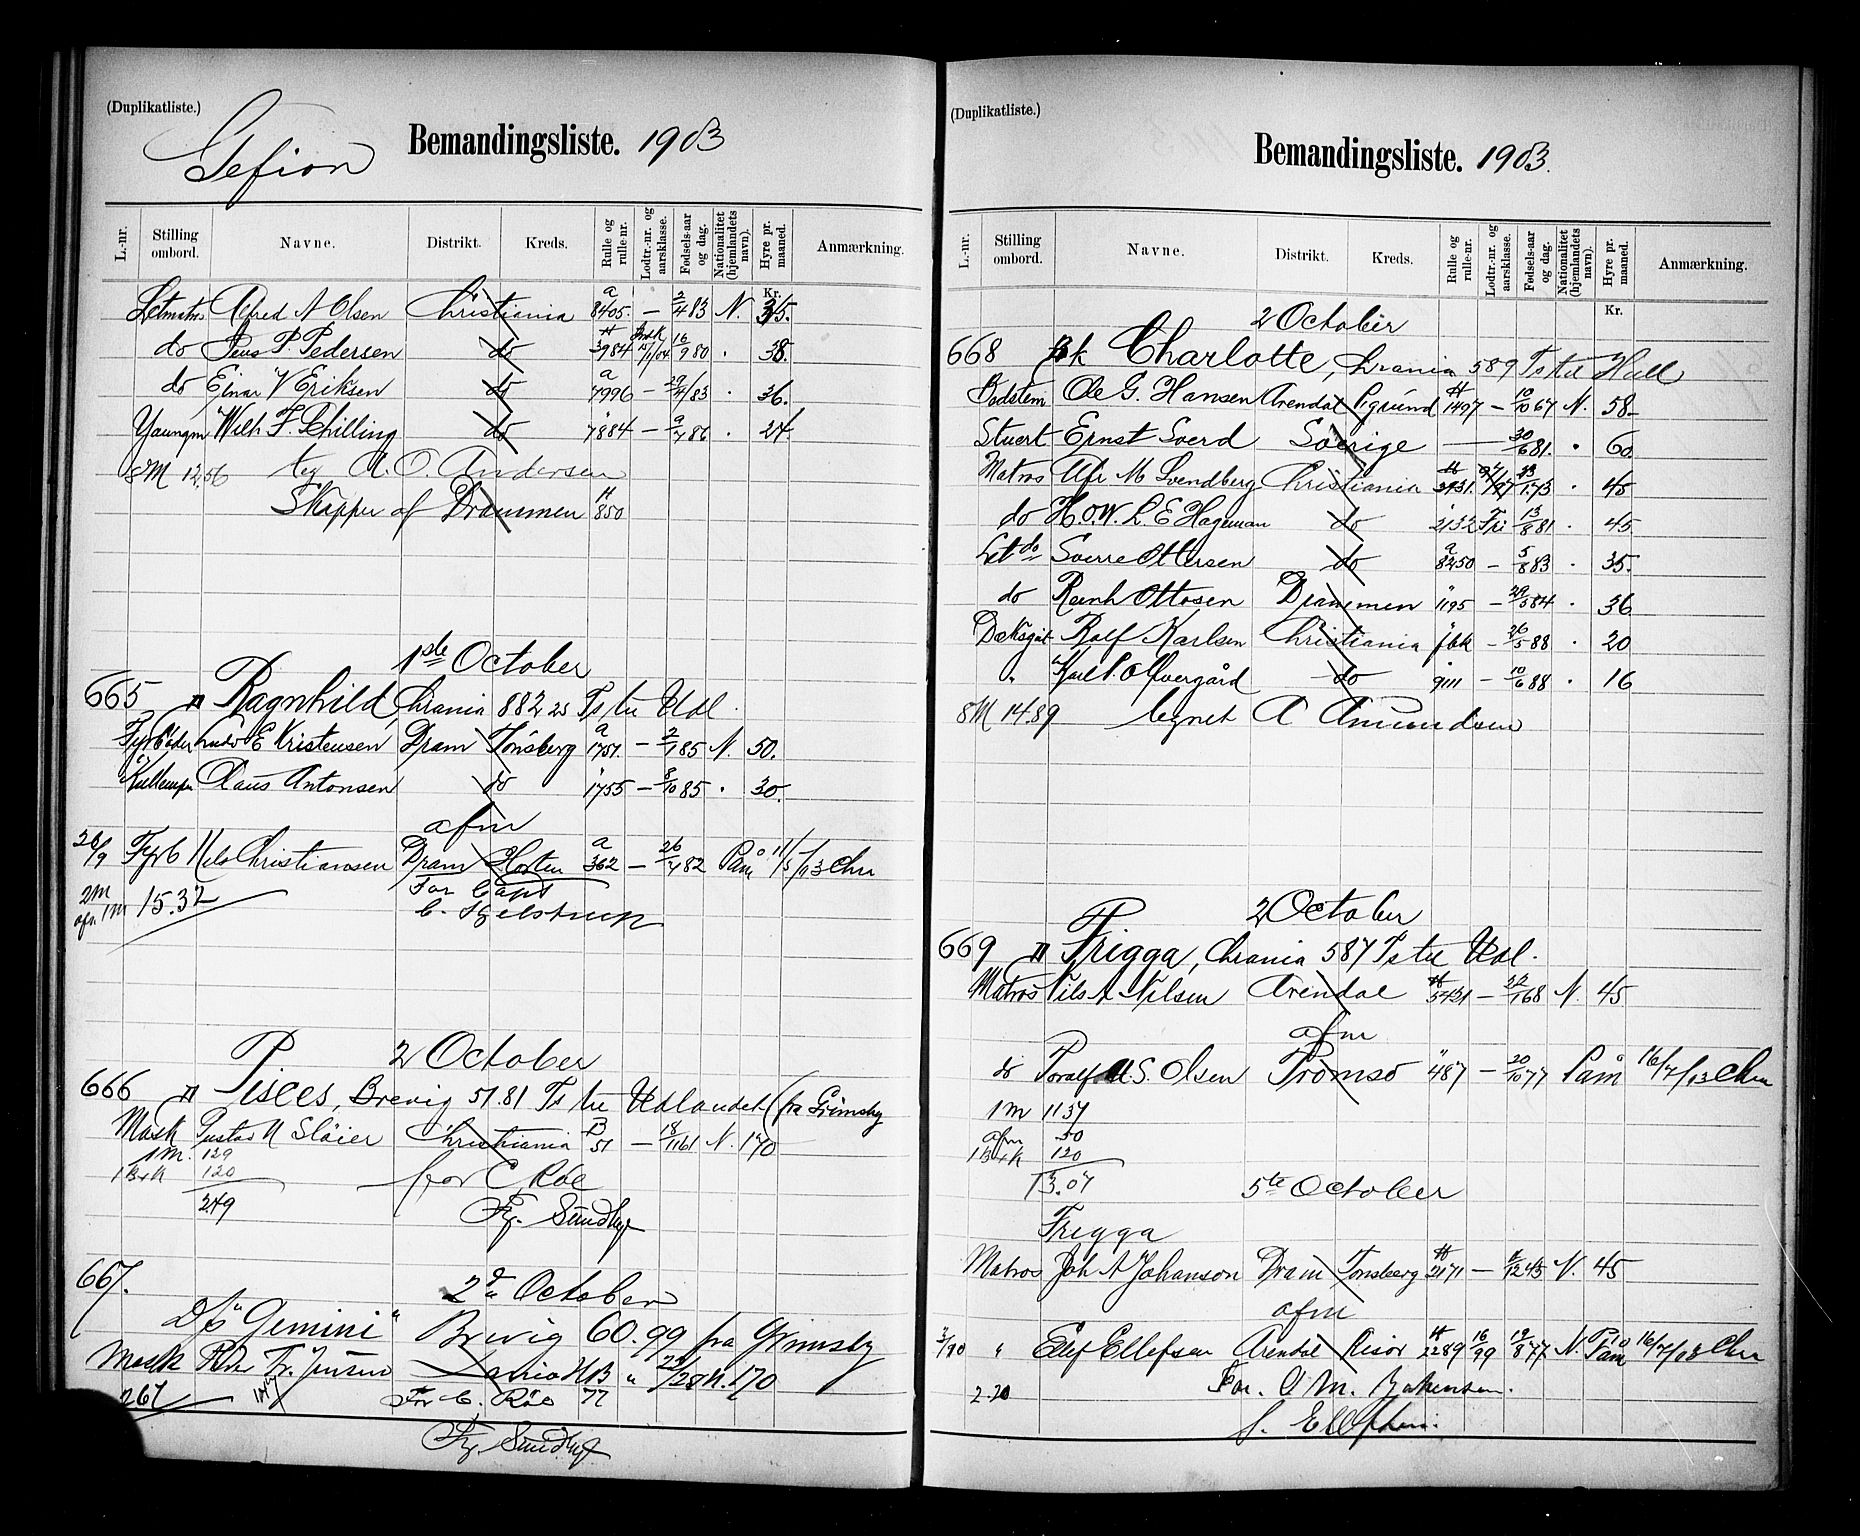 (Duplikatliste.)
Gefion
Bemandingsliste. 1903
L.-nr. Stilling ombord. Navne. Distrikt. Kreds. Rulle og rulle-nr. Lodtr.-nr. og aarsklasse. Fødsels-aar og dag. Nationalitet (hjemlandets navn). Hyre pr. maaned. Anmærkning.
Kr.
Letmatros Alfred A Olsen Christiania a 8405. — 2/4 83 N. 35.
do Jens P. Pedersen do 3984 16/9 80 . 38.
do Einar V Eriksen do a 7996 — 29/4 83 . 36.
Youngm Wilh F. Schilling do 7884 — 9/7 86 . 24.
8M 12,56 teg A. O. Andersen
Skipper af Drammen H 850
1ste October
665 D Ragnhild, Chrania 882 23 Ts til Udl.
Fyrbøder Ludv E Kristensen Dram Tönsberg a 1751. — 2/7 85 N. 50.
Kullemper Claus Antonsen do 1755 — 8/10 85 . 30.
afm
26/9 Fyrb Nils Christiansen Dram Horten a 362 — 26/7 82 Påm 11/5/03 Chra
2M
afm 1M 15.32
For Capt
C. Gjelstrup
2 October
666 D Pisces, Brevig 51.81 Ts til Udlandet (fra Grimsby
Mask Gustav A Slöier Christiania B 51 — 18/11 61 N. 170
1M. 129
1B+K 120
249
for C. Röe
Fr. Sundby
667.
2den October
D/S "Gemini" Brevig 60.99 fra Grimsby
Mask Fr. Jensen N. 170
267 For C. Röe 77
Fr. Sundby
(Duplikatliste.)
Bemandingsliste. 1903.
L.-nr. Stilling ombord. Navne. Distrikt. Kreds. Rulle og rulle-nr. Lodtr.-nr. og aarsklasse. Fødsels-aar og dag. Nationalitet (hjemlandets navn). Hyre pr. maaned. Anmærkning.
Kr.
2 October
668 Bk Charlotte, Chrania 589 Ts til Hull
Bodstem Ole G. Hansen Arendal Pgrund H 1497 — 10/10 67 N. 58
Stuert Ernst Sverd Sverige — 30/6 81. " 60
Matros Alfr M Svendberg Christiania H 3931. 73 . 45
do H.O.W. L. E Hageman do 2132 Fri 13/9 81 . 45.
Let do Sverre Ottersen do a 8250 — 5/8 83 . 35.
do Reinh Ottosen Drammen 1195 — 29/5 84 . 36
Dæksgut Rolf Karlsen Christiania — 26/5 88 . 20
" Karl P. Olvergård do 9111 — 10/6 88 . 16
8M 14.89 tegnet A Amundsen
2 October
669 D Frigga, Chrania 587 Ts til Udl.
Matros Nils A Nilsen Arendal H 5421 — 22/1 68 N. 45
afm
do Toralf A. S. Olsen Tromsö 487 — 20/10 77 Påm 16/7/03 Chra
1M 1137
afm 50
1B+K 120
13.07
5te October
Frigga
Matros Joh A Johanson Dram Tonsberg H 2171 — N. 45
afm
3/10 " Elef Ellefsen Arendal Risör H 2289 16/99 19/8 77 N. Påm 16/7/03 Chra
2.20 For. O M.
Ellefsen.